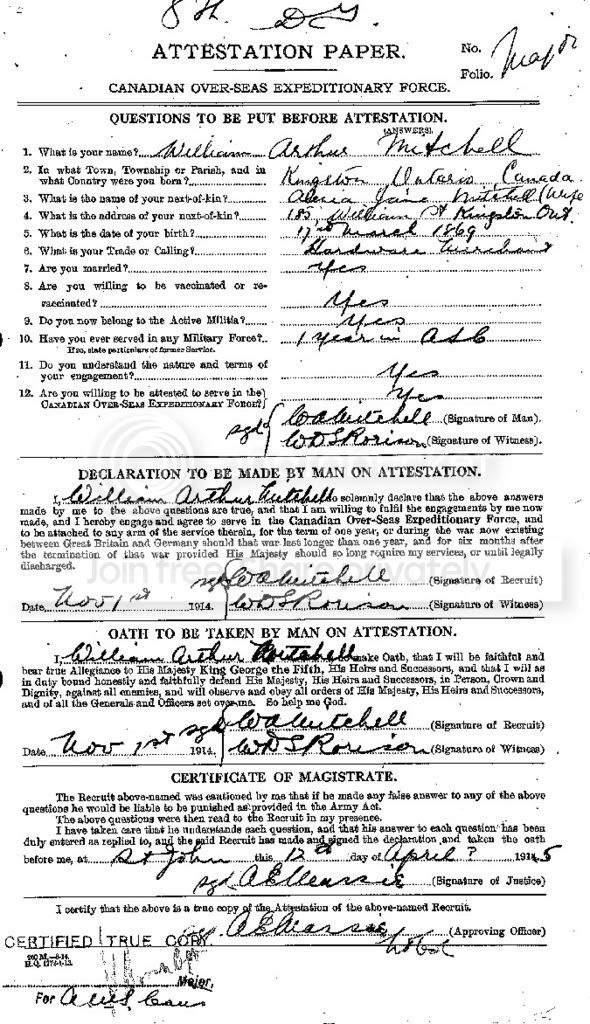 ATTESTATION PAPER.
No.
Major
Folio.
CANADIAN OVER-SEAS EXPEDITIONARY FORCE.
QUESTIONS TO BE PUT BEFORE ATTESTATION.
(ANSWERS).
1. What is your name? William Arthur Mitchell
2. In what Town, Township or Parish, and in
what Country were you born? Kingston, Ontario, Canada
3. What is the name of your next-of-kin? Jane Mitchell (Wife
4. What is the address of your next-of-kin? 185, William St Kingston Ont.
5. What is the date of your birth? 17th March 1869
6. What is your Trade or Calling? Hardware Merchant
7. Are you married? Yes
8. Are you willing to be vaccinated or re-
vaccinated? Yes
9. Do you now belong to the Active Militia? Yes
10. Have you ever served in any Military Force? 1 year in ASC
If so, state particulars of former Service.
11. Do you understand the nature and terms of
your engagement? Yes
12. Are you willing to be attested to serve in the
CANADIAN OVER-SEAS EXPEDITIONARY FORCE? Yes
sgd WA Mitchell (Signature of Man).
WDS Rorison (Signature of Witness).
DECLARATION TO BE MADE BY MAN ON ATTESTATION.
I, William Arthur Mitchell, do solemnly declare that the above answers
made by me to the above questions are true, and that I am willing to fulfil the engagements by me now
made, and I hereby engage and agree to serve in the Canadian Over-Seas Expeditionary Force, and
to be attached to any arm of the service therein, for the term of one year, or during the war now existing
between Great Britain and Germany should that war last longer than one year, and for six months after
the termination of that war provided His Majesty should so long require my services, or until legally
discharged.
sgd WA Mitchell (Signature of Recruit)
Date Nov 1st 1914. WDS Rorison (Signature of Witness)
OATH TO BE TAKEN BY MAN ON ATTESTATION.
I, William Arthur Mitchell, do make Oath, that I will be faithful and
bear true Allegiance to His Majesty King George the Fifth, His Heirs and Successors, and that I will as
in duty bound honestly and faithfully defend His Majesty, His Heirs and Successors, in Person, Crown and
Dignity, against all enemies, and will observe and obey all orders of His Majesty, His Heirs and Successors,
and of all the Generals and Officers set over me. So help me God.
sgd WA Mitchell (Signature of Recruit)
Date Nov 1st 1914. WDS Rorison (Signature of Witness)
CERTIFICATE OF MAGISTRATE.
The Recruit above-named was cautioned by me that if he made any false answer to any of the above
questions he would be liable to be punished as provided in the Army Act.
The above questions were then read to the Recruit in my presence.
I have taken care that he understands each question, and that his answer to each question has been
duly entered as replied to, and the said Recruit has made and signed the declaration and taken the oath
before me, at St John this 12th day of April ? 1915
sgd A E Massie (Signature of Justice)
I certify that the above is a true copy of the Attestation of the above-named Recruit.
A E Massie (Approving Officer)
Lt Col
CERTIFIED TRUE COPY
Major,
For